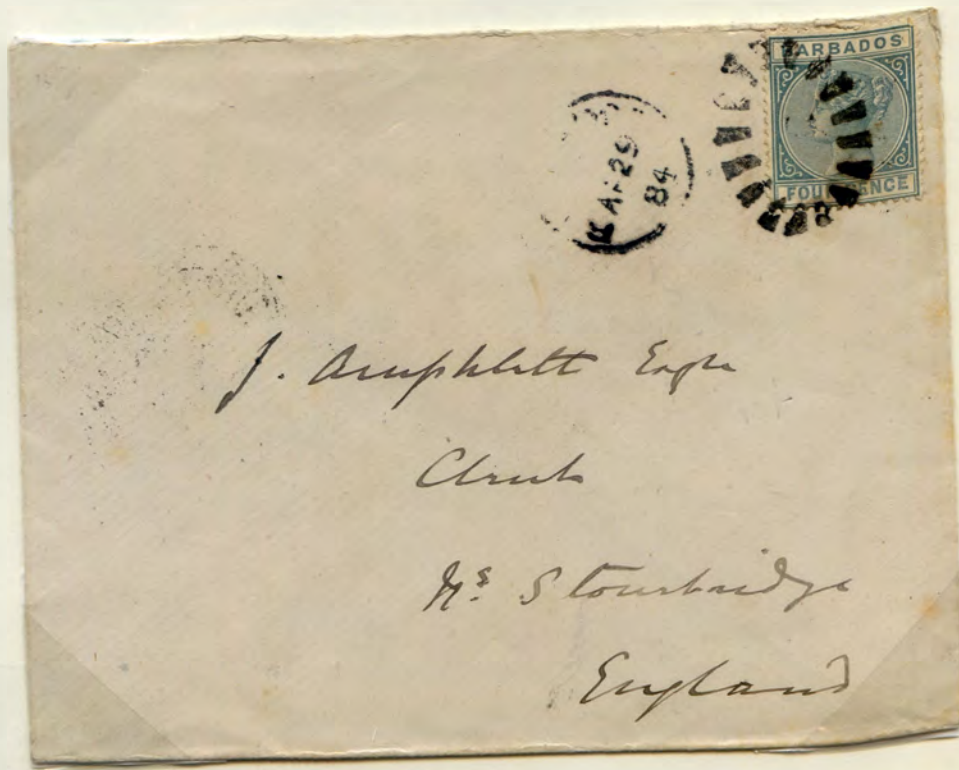 BARBADOS
FOUR PENCE
AP 29
84
J. Amphlett Esqre
Clent
Nr Stourbridge
England